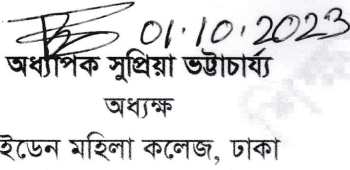 01.10.2023
অধ্যাপক সুপ্রিয়া ভট্টাচার্য্য
অধ্যক্ষ
ইডেন মহিলা কলেজ, ঢাকা